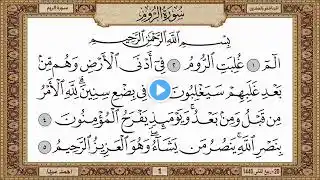 سورة الروم
سُورَةُ الرُّومِ
بِسْمِ اللَّهِ الرَّحْمَٰنِ الرَّحِيمِ
الٓمٓ ١ غُلِبَتِ الرُّومُ ٢ فِي أَدْنَى الْأَرْضِ وَهُم مِّن
بَعْدِ غَلَبِهِمْ سَيَغْلِبُونَ فِي بِضْعِ سِنِينَ لِلَّهِ الْأَمْرُ
مِن قَبْلُ وَمِن بَعْدُ وَيَوْمَئِذٍ يَفْرَحُ الْمُؤْمِنُونَ ٤
بِنَصْرِ اللَّهِ يَنصُرُ مَن يَشَاءُ وَهُوَ الْعَزِيزُ الرَّحِيمُ ٥
1